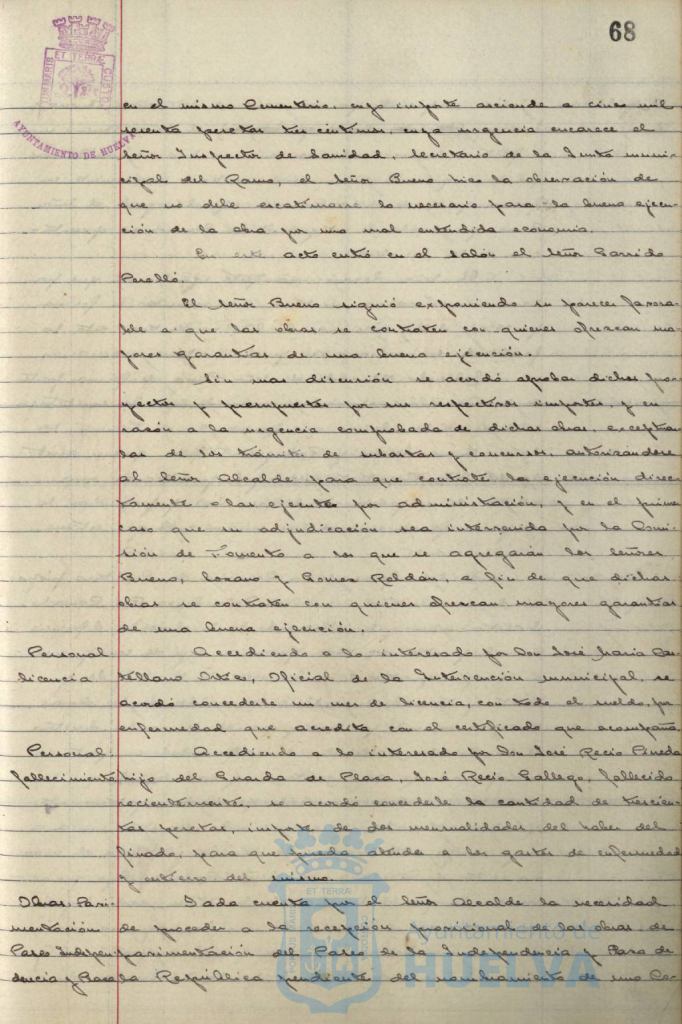 68
PORTUS MARIS ET TERRAE CUSTODIA
AYUNTAMIENTO DE HUELVA
en el mismo Cementerio, cuyo importe asciende a cinco mil
sesenta pesetas tres céntimos, cuya urgencia encarece el
Señor Inspector de Sanidad, Secretario de la Junta muni-
cipal del Ramo, el Señor Bueno hizo la observación de
que no debe escatimarse lo necesario para la buena ejecu-
ción de la obra por una mal entendida economía.
En este acto entró en el salón el Señor Garrido
Perelló.
El Señor Bueno siguió exponiendo su parecer favora-
ble a que las obras se contraten con quienes ofrezcan ma-
yores garantías de una buena ejecución.
Sin mas discusión se acordó aprobar dichos pro-
yectos y presupuestos por sus respectivos importes, y en
razón a la urgencia comprobada de dichas obras, exceptuar-
las de los trámites de subastas y concursos, autorizándose
al Señor Alcalde para que contrate la ejecución direc-
tamente o las ejecute por administración, y en el primer
caso que su adjudicación sea intervenida por la Comi-
sión de Fomento a los que se agregarán los Señores
Bueno, Lozano y Gomez Roldán, a fin de que dichas
obras se contraten con quienes ofrezcan mayores garantías
de una buena ejecución.
Personal Accediendo a lo interesado por Don José María Cas-
licencia tellano Ortiz, Oficial de la Intervención municipal, se
acordó concederle un mes de licencia, con todo el sueldo, por
enfermedad que acredita con el certificado que acompaña.
Personal. Accediendo a lo interesado por Don José Recio Pineda
fallecimiento. hijo del Guarda de Plaza, José Recio Gallego, fallecido
recientemente, se acordó concederle la cantidad de trescien-
tas pesetas, importe de dos mensualidades del haber del
finado, para que pueda atender a los gastos de enfermedad
y entierro del mismo.
Obras. Pavi- Dada cuenta por el Señor Alcalde la necesidad
mentación de proceder a la recepción provisional de las obras de
Paseo Indepen- pavimentación del Paseo de la Independencia y Plaza de
dencia y Plaza la República pendiente del nombramiento de una Co-
Ayuntamiento de
HUELVA